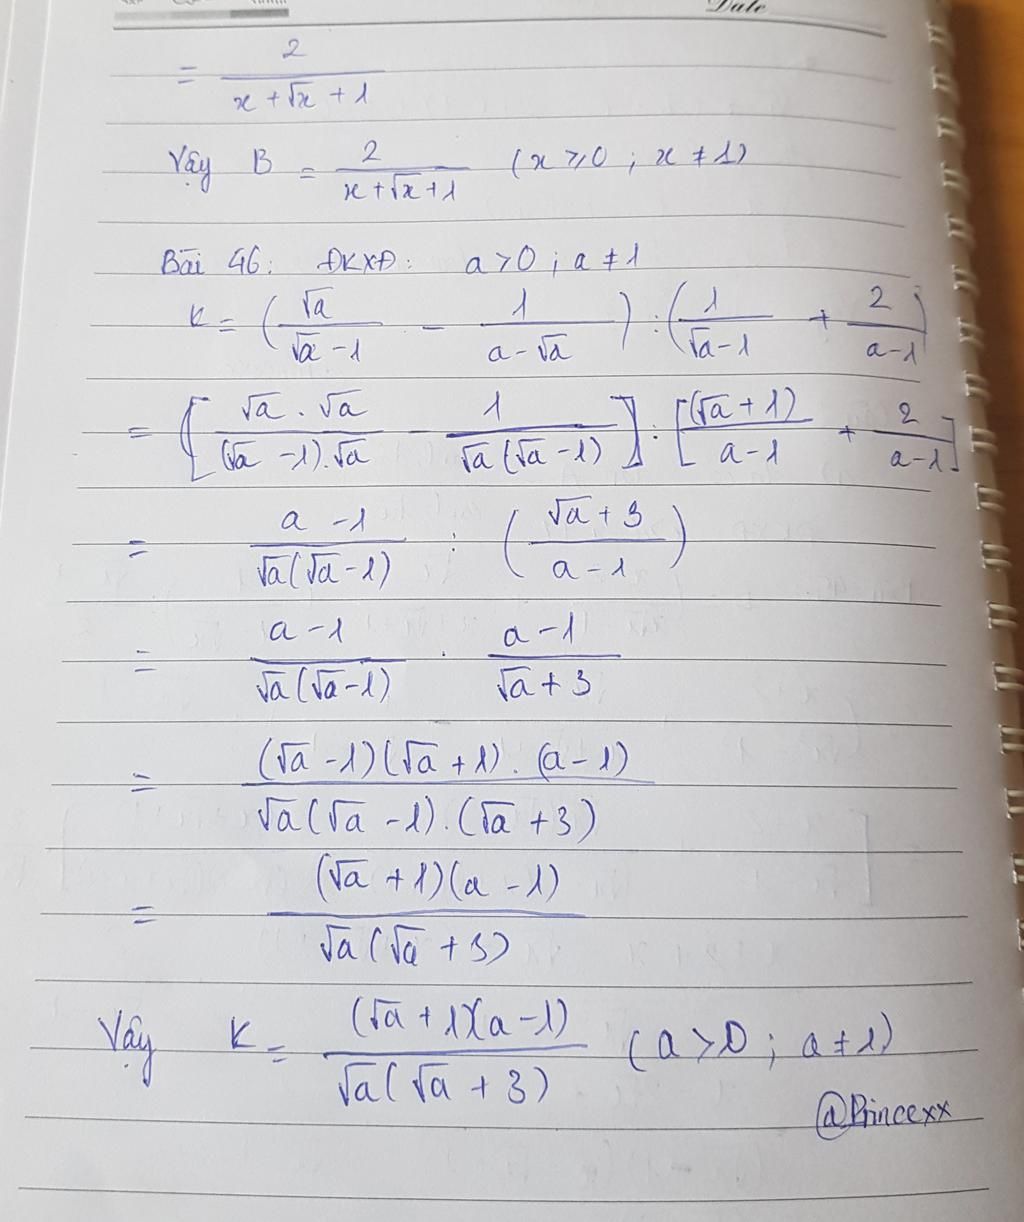 Date
= 2/(x + √x + 1)
Vậy B = 2/(x + √x + 1) (x ≥ 0 ; x ≠ 1)
Bài 46: ĐKXĐ: a > 0 ; a ≠ 1
K = (√a/(√a - 1) - 1/(a - √a)) : (1/(√a - 1) + 2/(a - 1))
= [(√a . √a)/((√a - 1).√a) - 1/(√a(√a - 1))] : [(√a + 1)/(a - 1) + 2/(a - 1)]
= (a - 1)/(√a(√a - 1)) : ((√a + 3)/(a - 1))
= (a - 1)/(√a(√a - 1)) . (a - 1)/(√a + 3)
= ((√a - 1)(√a + 1).(a - 1))/(√a(√a - 1).(√a + 3))
= ((√a + 1)(a - 1))/(√a(√a + 3))
Vậy K = ((√a + 1)(a - 1))/(√a(√a + 3)) (a > 0 ; a ≠ 1)
@Princexx